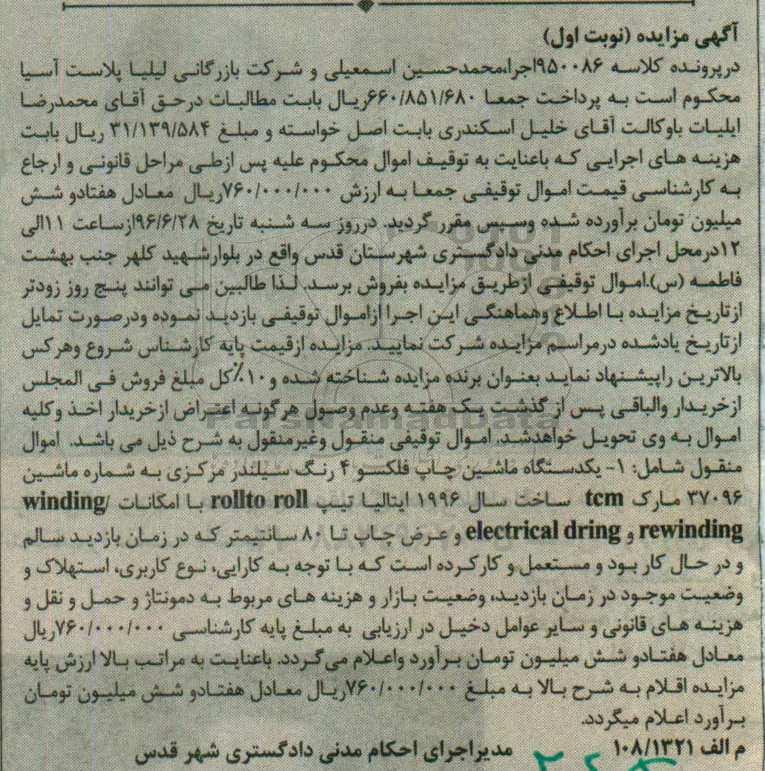 آگهی مزایده (نوبت اول)
درپرونده کلاسه ۹۵۰۰۸۶اجرا،محمدحسین اسمعیلی و شرکت بازرگانی لیلیا پلاست آسیا
محکوم است به پرداخت جمعا ۶۶۰/۸۵۱/۶۸۰ریال بابت مطالبات درحق آقای محمدرضا
ایلیات باوکالت آقای خلیل اسکندری بابت اصل خواسته و مبلغ ۳۱/۱۳۹/۵۸۴ ریال بابت
هزینه های اجرایی که باعنایت به توقیف اموال محکوم علیه پس ازطی مراحل قانونی و ارجاع
به کارشناسی قیمت اموال توقیفی جمعا به ارزش ۷۶۰/۰۰۰/۰۰۰ریال معادل هفتادو شش
میلیون تومان برآورده شده وسپس مقرر گردید. درروز سه شنبه تاریخ ۹۶/۶/۲۸ازساعت ۱۱الی
۱۲درمحل اجرای احکام مدنی دادگستری شهرستان قدس واقع در بلوارشهید کلهر جنب بهشت
فاطمه (س).اموال توقیفی ازطریق مزایده بفروش برسد. لذا طالبین می توانند پنج روز زودتر
ازتاریخ مزایده با اطلاع وهماهنگی این اجرا ازاموال توقیفی بازدید نموده ودرصورت تمایل
ازتاریخ یادشده درمراسم مزایده شرکت نمایید. مزایده ازقیمت پایه کارشناس شروع وهرکس
بالاترین راپیشنهاد نماید بعنوان برنده مزایده شناخته شده و۱۰٪کل مبلغ فروش فی المجلس
ازخریدار والباقی پس از گذشت یک هفته وعدم وصول هرگونه اعتراض ازخریدار اخذ وکلیه
اموال به وی تحویل خواهدشد. اموال توقیفی منقول وغیرمنقول به شرح ذیل می باشد. اموال
منقول شامل: ۱- یکدستگاه ماشین چاپ فلکسو ۴ رنگ سیلندر مرکزی به شماره ماشین
۳۷۰۹۶ مارک tcm ساخت سال ۱۹۹۶ ایتالیا تیپ rollto roll با امکانات winding/
rewinding و electrical dring و عرض چاپ تا ۸۰ سانتیمتر که در زمان بازدید سالم
و در حال کار بود و مستعمل و کارکرده است که با توجه به کارایی، نوع کاربری، استهلاک و
وضعیت موجود در زمان بازدید، وضعیت بازار و هزینه های مربوط به دمونتاژ و حمل و نقل و
هزینه های قانونی و سایر عوامل دخیل در ارزیابی به مبلغ پایه کارشناسی ۷۶۰/۰۰۰/۰۰۰ریال
معادل هفتادو شش میلیون تومان برآورد واعلام می گردد. باعنایت به مراتب بالا ارزش پایه
مزایده اقلام به شرح بالا به مبلغ ۷۶۰/۰۰۰/۰۰۰ریال معادل هفتادو شش میلیون تومان
برآورد اعلام میگردد.
م الف ۱۰۸/۱۳۲۱ مدیراجرای احکام مدنی دادگستری شهر قدس